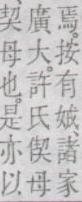 焉。按有娀諸家
廣大。許氏偰母
契母也。是亦以